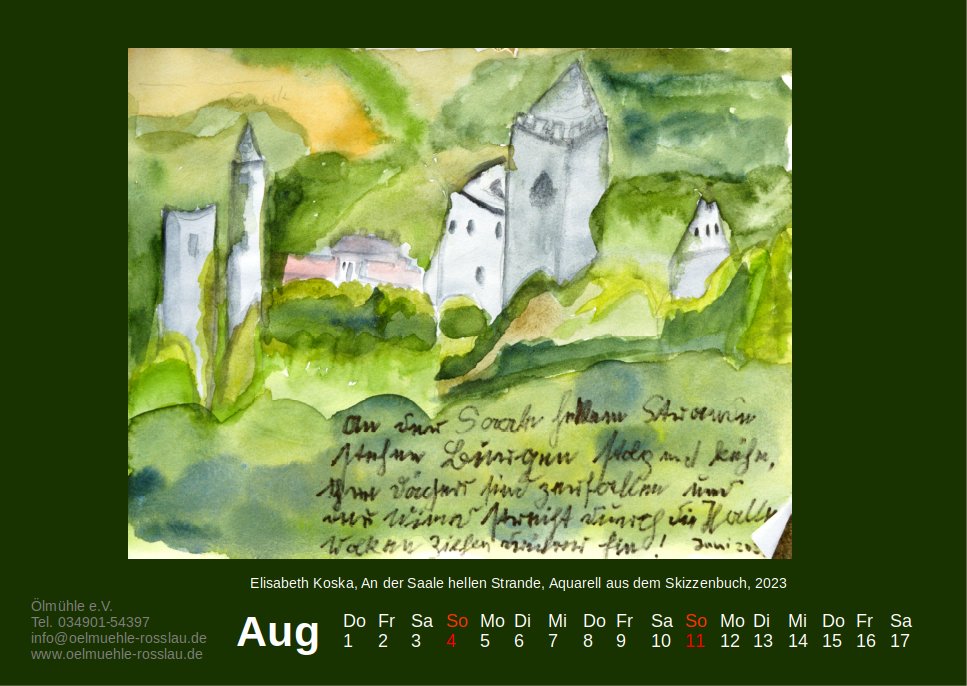 An der Saale hellem Strande
stehen Burgen stolz und kühn,
Ihre Dächer sind zerfallen und
der Wind streicht durch die Halle
Wolken ziehen drüber hin! Juni
Elisabeth Koska, An der Saale hellen Strande, Aquarell aus dem Skizzenbuch, 2023
Ölmühle e.V.
Tel. 034901-54397
info@oelmuehle-rosslau.de
www.oelmuehle-rosslau.de
Aug
Do Fr Sa So Mo Di Mi Do Fr Sa So Mo Di Mi Do Fr Sa
1 2 3 4 5 6 7 8 9 10 11 12 13 14 15 16 17